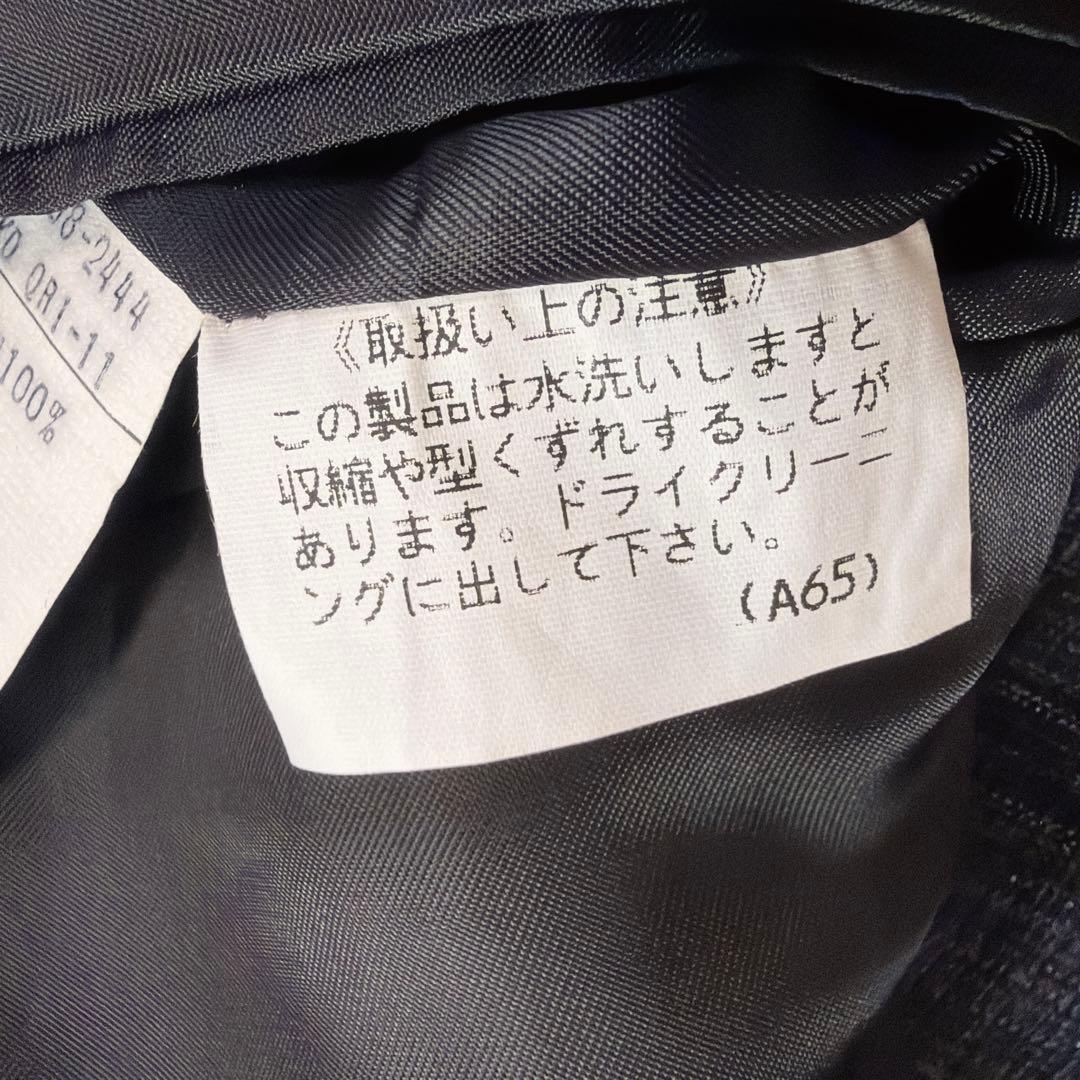 8-2444
OR1-11
100%
《取扱い上の注意》
この製品は水洗いしますと
収縮や型くずれすることが
あります。ドライクリーニ
ングに出して下さい。
(A65)